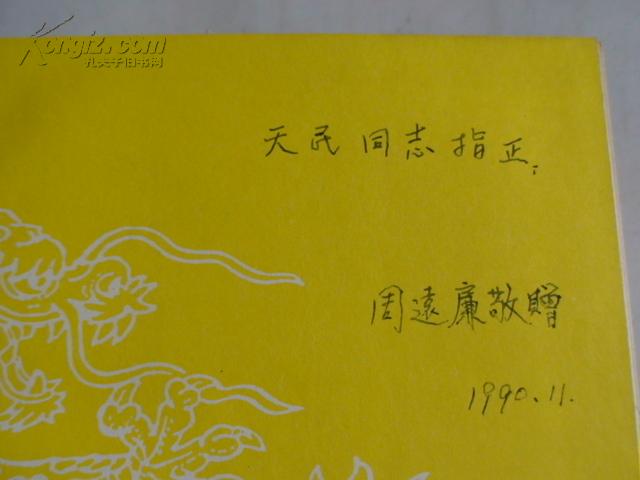 Kongfz.com
孔夫子旧书网
天民同志指正;
周遠廉敬贈
1990.11.